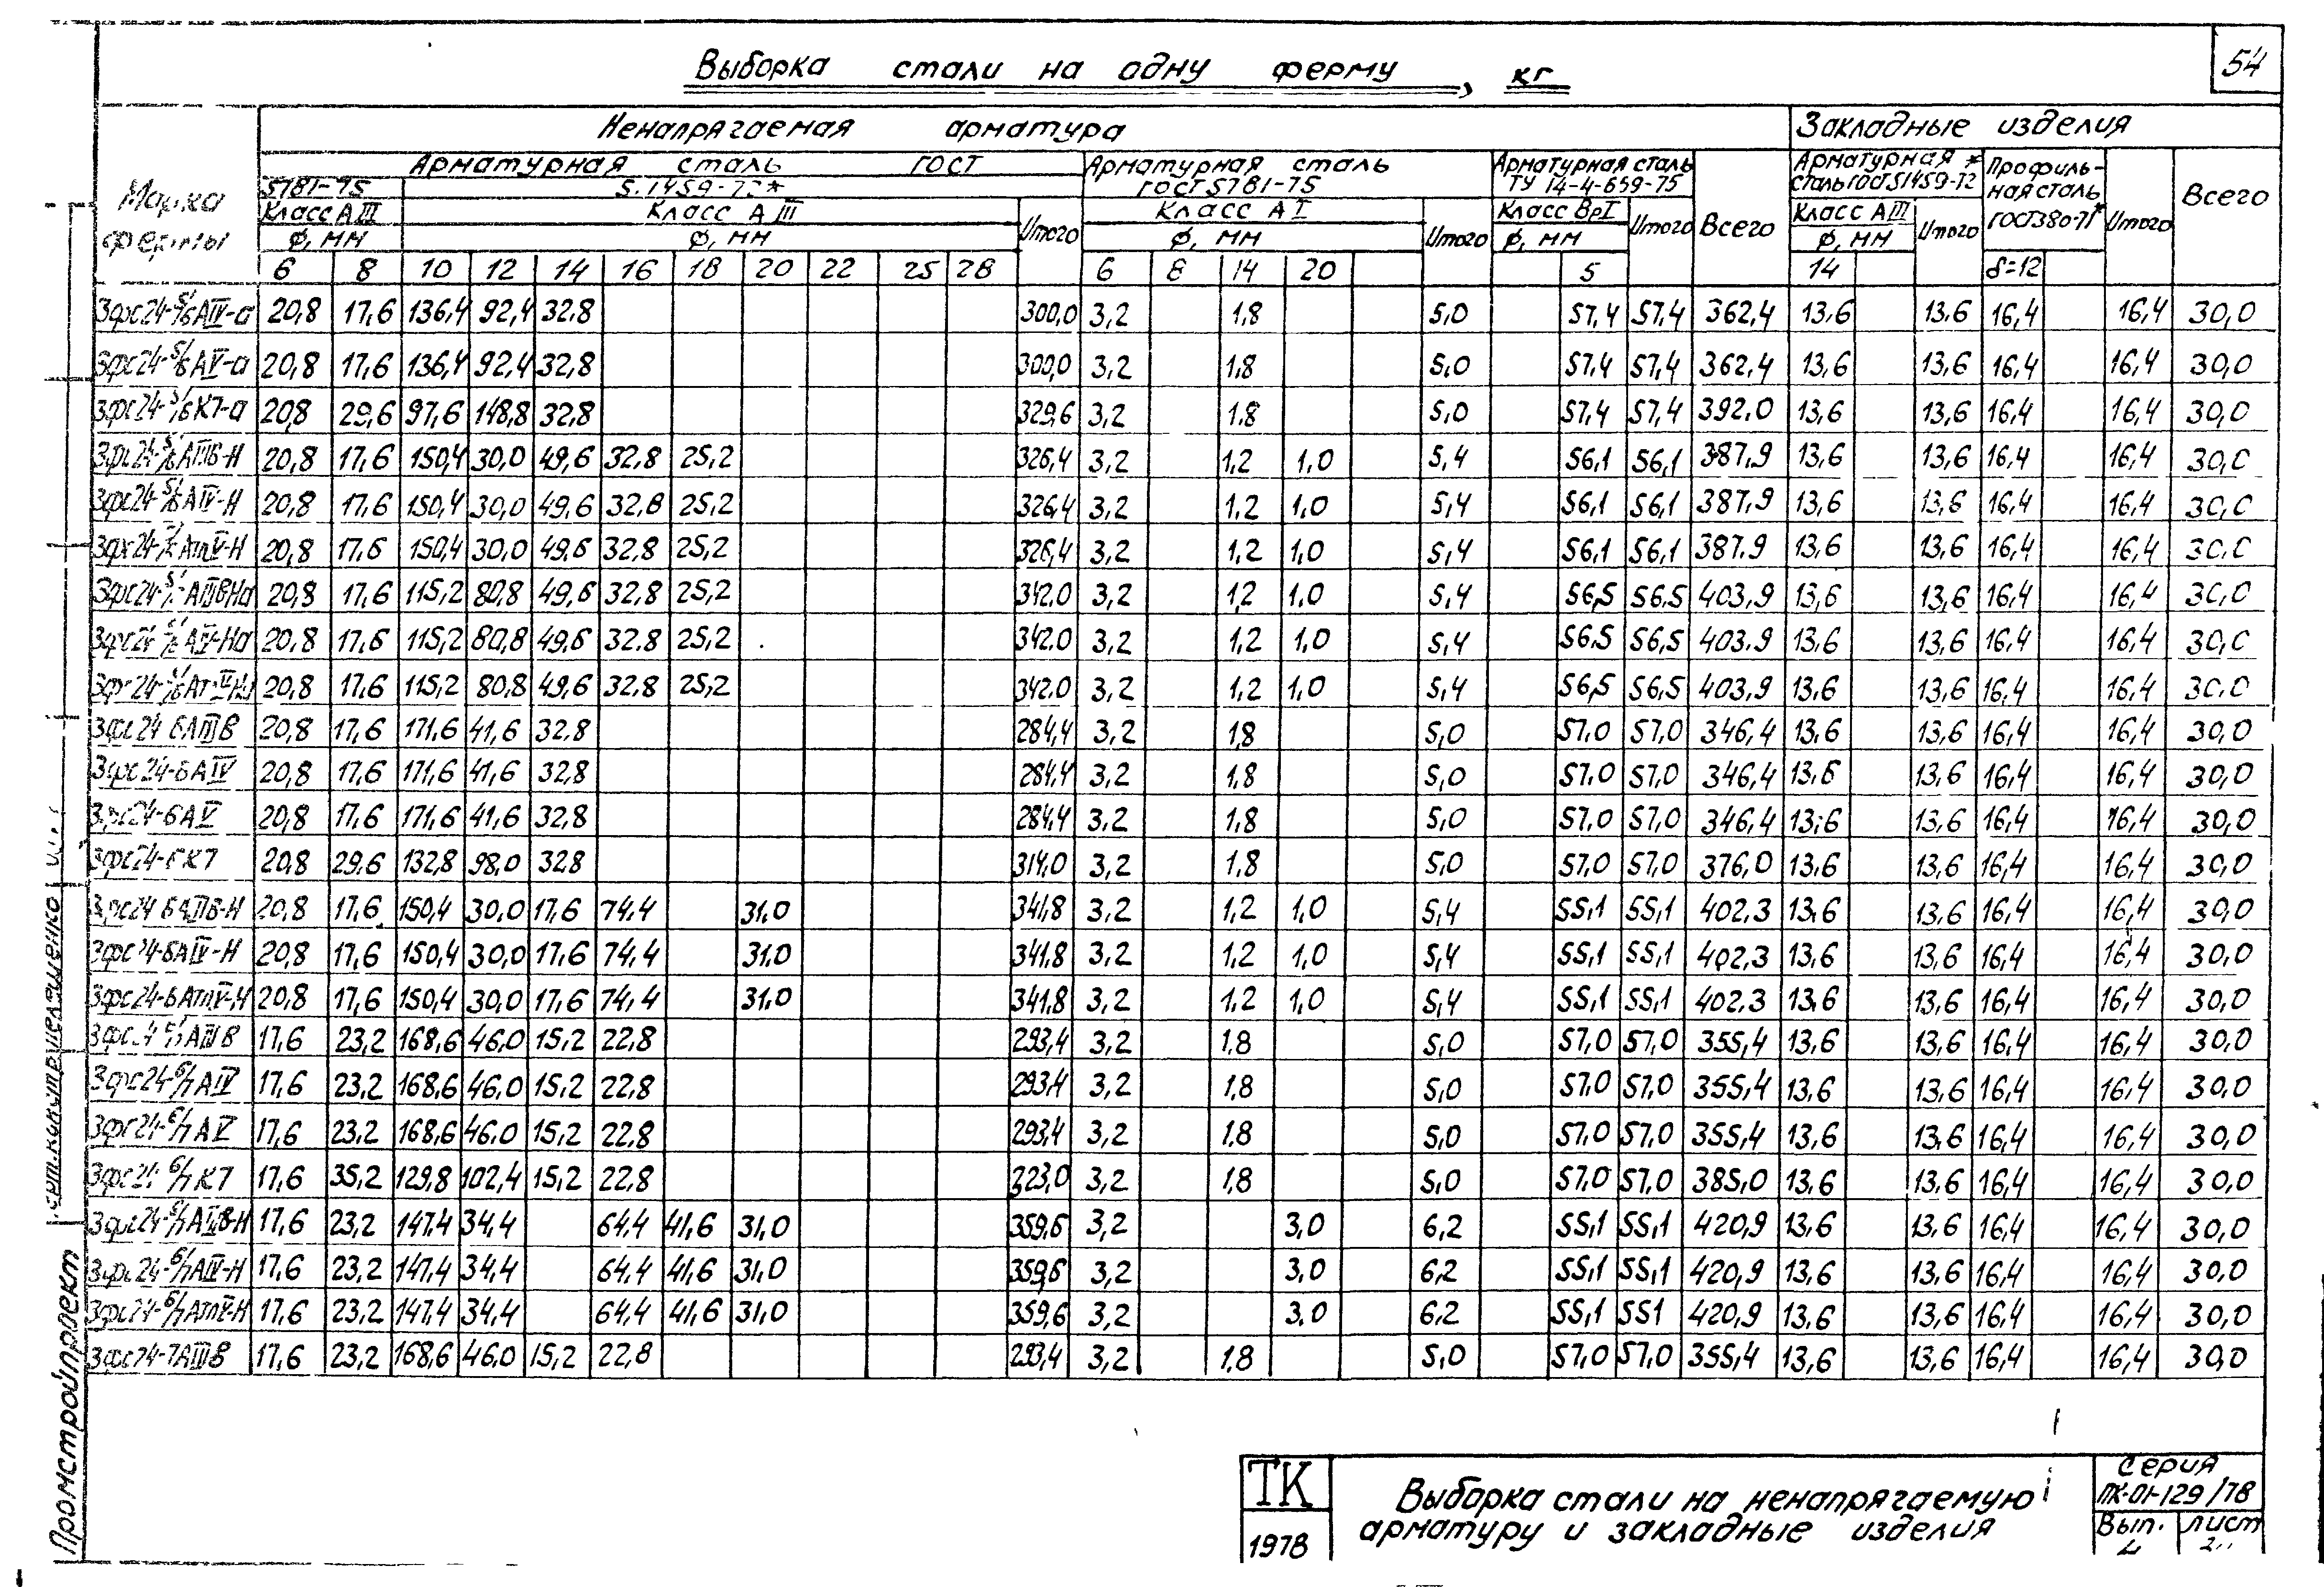 54
Выборка стали на одну ферму, кг
Марка фермы
Ненапрягаемая арматура
Закладные изделия
Арматурная сталь ГОСТ
Арматурная сталь ГОСТ 5781-75
Арматурная сталь ТУ 14-4-659-75
Всего
Арматурная сталь ГОСТ 51459-72*
Профильная сталь ГОСТ 380-71*
Итого
Всего
5781-75
5.1459-72*
Класс АIII
Класс АIII
Итого
Класс АI
Итого
Класс ВрI
Итого
Класс АIII
Итого
ф, мм
ф, мм
ф, мм
ф, мм
ф, мм
6 8 10 12 14 16 18 20 22 25 28 6 8 14 20 5 14 δ=12
3фс24-5/6АIV-а 20,8 17,6 136,4 92,4 32,8 300,0 3,2 1,8 5,0 57,4 57,4 362,4 13,6 13,6 16,4 16,4 30,0
3фс24-5/6АV-а 20,8 17,6 136,4 92,4 32,8 300,0 3,2 1,8 5,0 57,4 57,4 362,4 13,6 13,6 16,4 16,4 30,0
3фс24-5/6К7-а 20,8 29,6 97,6 148,8 32,8 329,6 3,2 1,8 5,0 57,4 57,4 392,0 13,6 13,6 16,4 16,4 30,0
3фс24-5/6АIIIВ-Н 20,8 17,6 150,4 30,0 49,6 32,8 25,2 326,4 3,2 1,2 1,0 5,4 56,1 56,1 387,9 13,6 13,6 16,4 16,4 30,0
3фс24-5/6АIV-Н 20,8 17,6 150,4 30,0 49,6 32,8 25,2 326,4 3,2 1,2 1,0 5,4 56,1 56,1 387,9 13,6 13,6 16,4 16,4 30,0
3фс24-5/6АтпV-Н 20,8 17,6 150,4 30,0 49,6 32,8 25,2 326,4 3,2 1,2 1,0 5,4 56,1 56,1 387,9 13,6 13,6 16,4 16,4 30,0
3фс24-5/6АIIIВНа 20,8 17,6 115,2 80,8 49,6 32,8 25,2 342,0 3,2 1,2 1,0 5,4 56,5 56,5 403,9 13,6 13,6 16,4 16,4 30,0
20,8 17,6 115,2 80,8 49,6 32,8 25,2 342,0 3,2 1,2 1,0 5,4 56,5 56,5 403,9 13,6 13,6 16,4 16,4 30,0
20,8 17,6 115,2 80,8 49,6 32,8 25,2 342,0 3,2 1,2 1,0 5,4 56,5 56,5 403,9 13,6 13,6 16,4 16,4 30,0
3фс24-6АIIIВ 20,8 17,6 171,6 41,6 32,8 284,4 3,2 1,8 5,0 57,0 57,0 346,4 13,6 13,6 16,4 16,4 30,0
3фс24-6АIV 20,8 17,6 171,6 41,6 32,8 284,4 3,2 1,8 5,0 57,0 57,0 346,4 13,6 13,6 16,4 16,4 30,0
3фс24-6АV 20,8 17,6 171,6 41,6 32,8 284,4 3,2 1,8 5,0 57,0 57,0 346,4 13,6 13,6 16,4 16,4 30,0
3фс24-6К7 20,8 29,6 132,8 98,0 32,8 314,0 3,2 1,8 5,0 57,0 57,0 376,0 13,6 13,6 16,4 16,4 30,0
3фс24-6АIIIВ-Н 20,8 17,6 150,4 30,0 17,6 74,4 31,0 341,8 3,2 1,2 1,0 5,4 55,1 55,1 402,3 13,6 13,6 16,4 16,4 30,0
3фс24-6АIV-Н 20,8 17,6 150,4 30,0 17,6 74,4 31,0 341,8 3,2 1,2 1,0 5,4 55,1 55,1 402,3 13,6 13,6 16,4 16,4 30,0
3фс24-6АтпV-Н 20,8 17,6 150,4 30,0 17,6 74,4 31,0 341,8 3,2 1,2 1,0 5,4 55,1 55,1 402,3 13,6 13,6 16,4 16,4 30,0
3фс24-6/7АIIIВ 17,6 23,2 168,6 46,0 15,2 22,8 293,4 3,2 1,8 5,0 57,0 57,0 355,4 13,6 13,6 16,4 16,4 30,0
3фс24-6/7АIV 17,6 23,2 168,6 46,0 15,2 22,8 293,4 3,2 1,8 5,0 57,0 57,0 355,4 13,6 13,6 16,4 16,4 30,0
3фс24-6/7АV 17,6 23,2 168,6 46,0 15,2 22,8 293,4 3,2 1,8 5,0 57,0 57,0 355,4 13,6 13,6 16,4 16,4 30,0
3фс24-6/7К7 17,6 35,2 129,8 102,4 15,2 22,8 323,0 3,2 1,8 5,0 57,0 57,0 385,0 13,6 13,6 16,4 16,4 30,0
3фс24-6/7АIIIВ-Н 17,6 23,2 147,4 34,4 64,4 41,6 31,0 359,6 3,2 3,0 6,2 55,1 55,1 420,9 13,6 13,6 16,4 16,4 30,0
3фс24-6/7АIV-Н 17,6 23,2 147,4 34,4 64,4 41,6 31,0 359,6 3,2 3,0 6,2 55,1 55,1 420,9 13,6 13,6 16,4 16,4 30,0
3фс24-6/7АтпV-Н 17,6 23,2 147,4 34,4 64,4 41,6 31,0 359,6 3,2 3,0 6,2 55,1 551 420,9 13,6 13,6 16,4 16,4 30,0
3фс24-7АIIIВ 17,6 23,2 168,6 46,0 15,2 22,8 293,4 3,2 1,8 5,0 57,0 57,0 355,4 13,6 13,6 16,4 16,4 30,0
Промстройпроект
ТК
1978
Выборка стали на ненапрягаемую
арматуру и закладные изделия
Серия
ПК-01-129/78
Вып. Лист
4